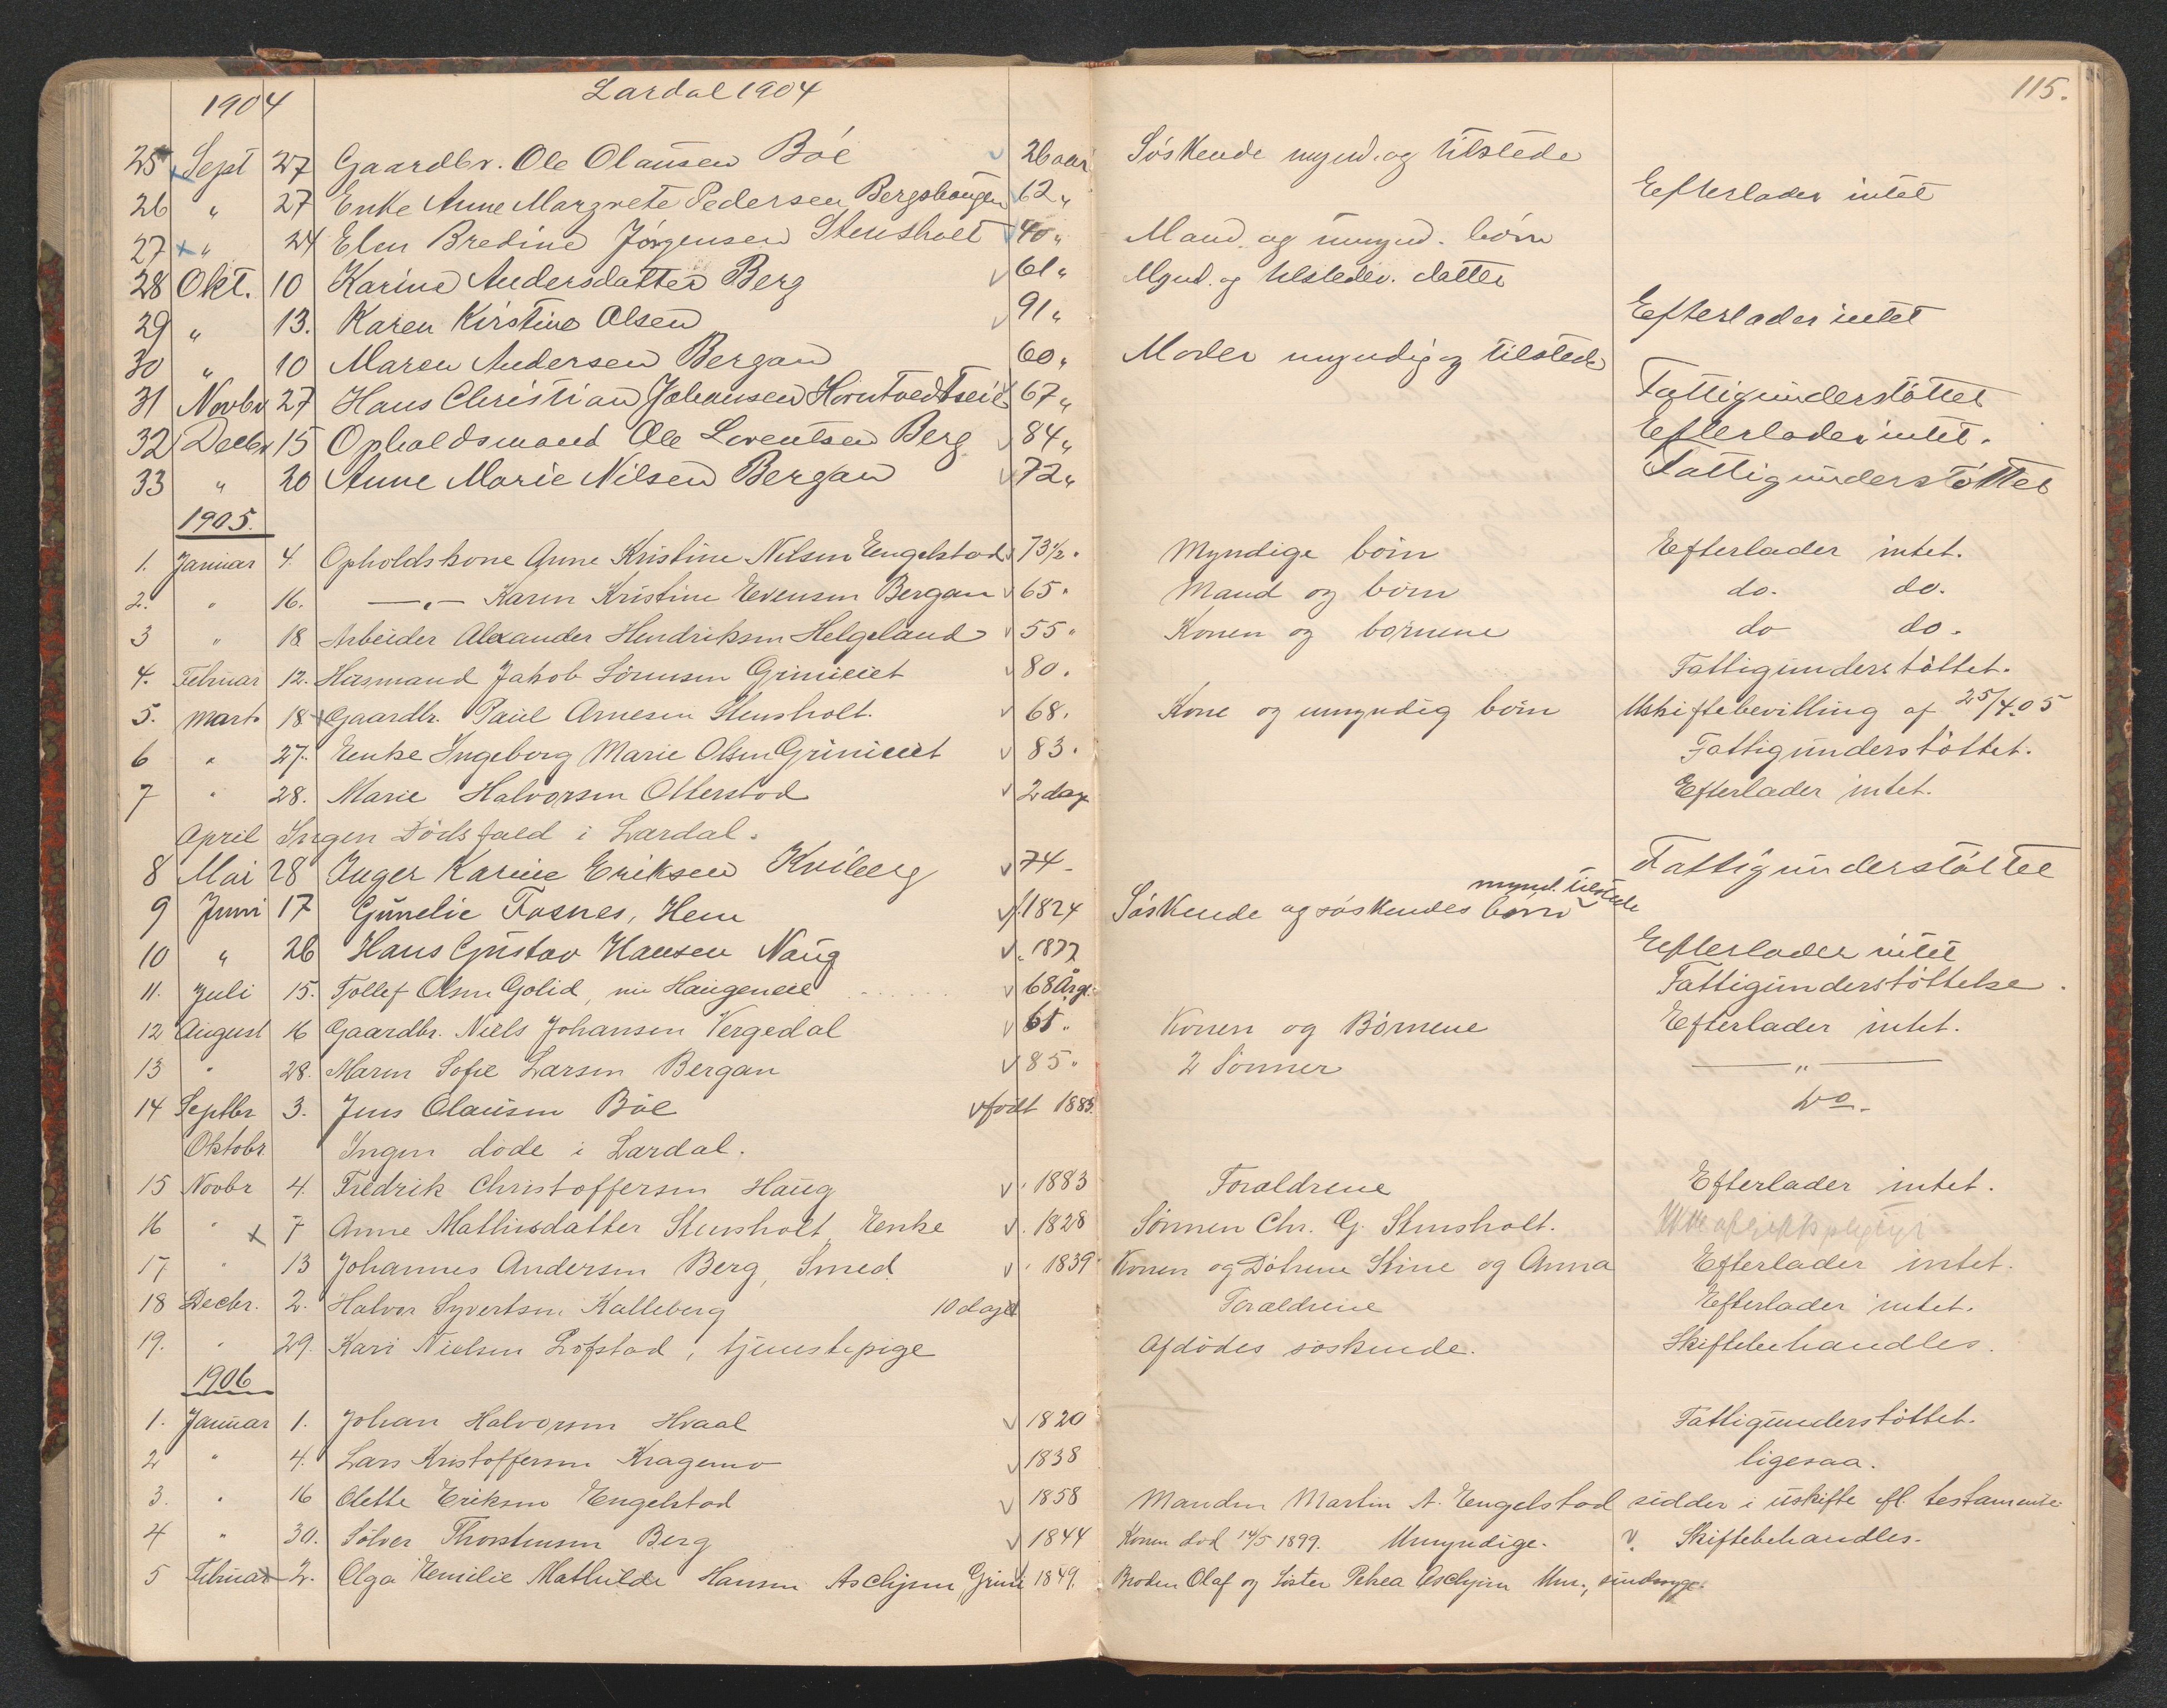 Lardal 1904
115.
1904
25 Sept 27 Gaardbr. Ole Olausen Böe 26 aar Söskende mynd. og tilstede
26 " 27 Enke Anne Margrete Pedersen Bergshaugen 62 " Efterlader intet
27 " 24 Elen Bredine Jörgensen Stensholt 40 " Mand og umynd. börn
28 Okt. 10 Karine Andersdatter Berg 61 " Mynd. og tilstedev. datter
29 " 13. Karen Kirstine Olsen 91 " Efterlader intet
30 " 10 Maren Andersen Bergan 60 " Moder myndig og tilstede
31 Novbr 27 Hans Christian Johansen Horntvedt 67 " Fattigunderstöttet
32 Decbr 15 Opholdsmand Ole Lorentsen Berg 84 " Efterlader intet.
33 " 20 Anne Marie Nilsen Bergan 72 " Fattigunderstöttet
1905.
1. Januar 4. Opholdskone Anne Kristine Nilsen Engelstad 73½ " Myndige börn Efterlader intet.
2. " 16. —"— Karen Kristine Evensen Bergan 65 " Mand og börn do. do.
3 " 18 Arbeider Alexander Hendriksen Helgeland 55 " Konen og börnene do do.
4. Februar 12. Husmand Jakob Sörensen Grinieiet 80. Fattigunderstöttet.
5. Marts 18 Gaardbr. Paul Arnesen Stensholt. 68. Kone og umyndig börn Uskiftebevilling af 25/4.05
6 " 27. Enke Ingeborg Marie Olsen Grinieiet 83. Fattigunderstöttet.
7 " 28. Marie Halvorsen Otterstad 2 dage Efterlader intet.
April Ingen Dödsfald i Lardal.
8 Mai 28 Inger Karine Eriksen Kviberg 74 - Fattigunderstöttet
9 Juni 17 Gunelie Fosnes, Hem f. 1824 Söskende og söskendes börn mynd. tilstede
10 " 26 Hans Gustav Hansen Naug " 1877 Efterlader intet
11. Juli 15. Tollef Olsen Golid, nu Haugeneie 68 Årg. Fattigunderstöttelse.
12 August 16 Gaardbr. Niels Johansen Vergedal 61 " Konen og Börnene Efterlader intet.
13 " 28. Maren Sofie Larsen Bergan 85 " 2 Sönner —"—
14 Septbr 3. Jens Olausen Böe födt 1885. Do.
Oktobr Ingen döde i Lardal.
15 Novbr 4. Fredrik Christoffersen Haug " 1883 Foraldrene Efterlader intet.
16 " 7 Anne Mathisdatter Stensholt, Enke " 1828 Sönnen Chr. G. Stensholt.
17 " 13 Johannes Andersen Berg, Smed " 1839 Konen og Döttrene Stine og Anna Efterlader intet.
18 Decbr. 2. Halvor Syvertsen Kalleberg 10 dage Foraldrene Efterlader intet.
19. " 29. Kari Nielsen Löfstad, tjenestepige Afdödes söskende. Skiftebehandles.
1906
1. Januar 1. Johan Halvorsen Hvaal 1820 Fattigunderstöttet.
2 " 4. Lars Kristoffersen Kragemo 1838 ligesaa.
3. " 16 Olette Eriksen Engelstad 1858 Manden Martin A. Engelstad sidder i uskifte efl. testamente
4 " 30. Sölver Thorstensen Berg 1844 Konen död 14/5 1899. Umyndige. Skiftebehandles.
5 Februar 2. Olga Emilie Mathilde Hansen Aschjem, Grini 1849. Broden Olaf og Söster Petrea Aschjem Um., sindssyge.